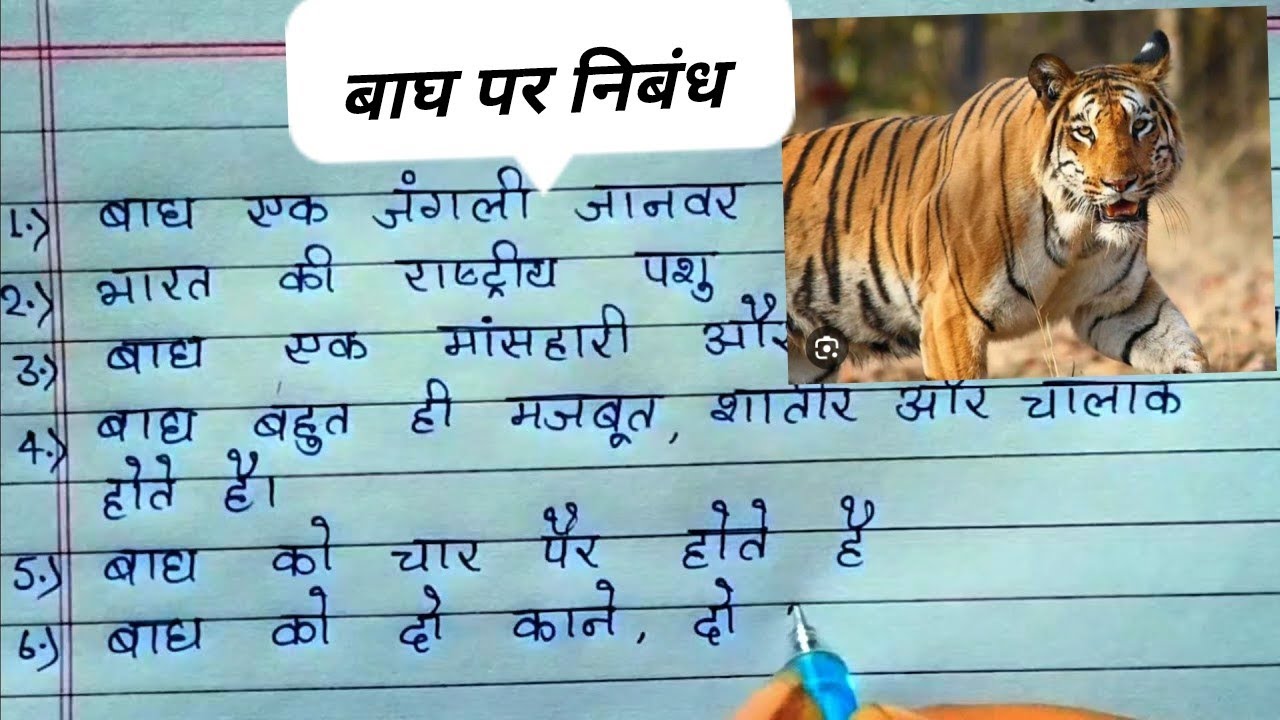 बाघ पर निबंध
1.) बाघ एक जंगली जानवर
2.) भारत की राष्ट्रीय पशु
3.) बाघ एक मांसहारी और
4.) बाघ बहुत ही मजबूत, शातीर और चालाक
होते है।
5.) बाघ को चार पैर होते है
6.) बाघ को दो काने, दो